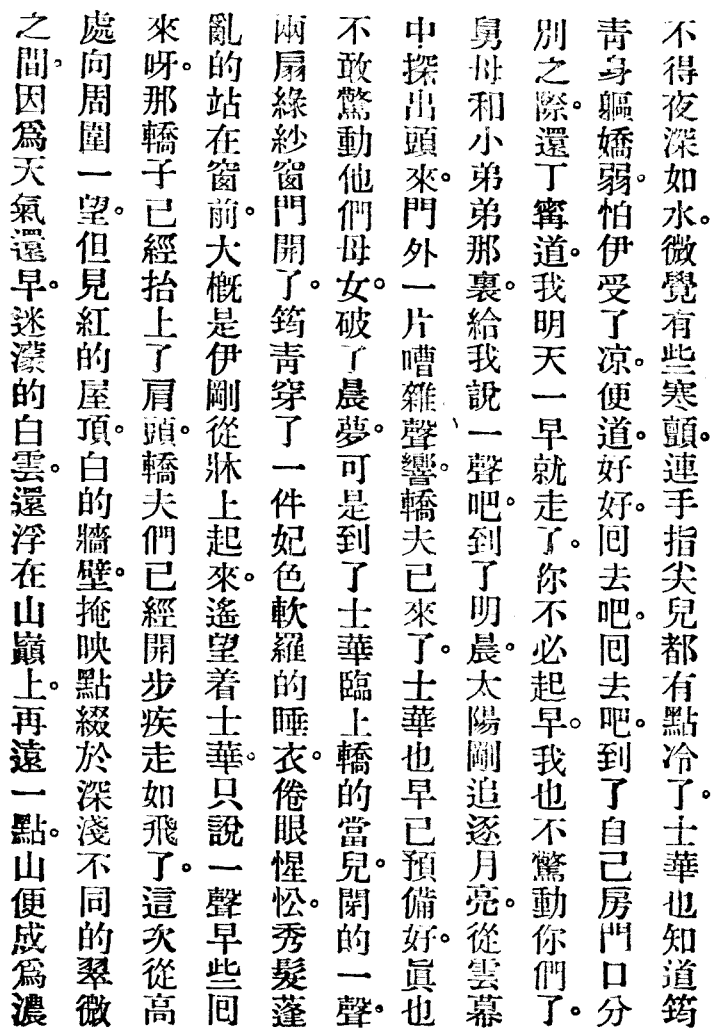 不得夜深如水。微覺有些寒顫。連手指尖兒都有點冷了。士華也知道筠
靑身軀嬌弱。怕伊受了凉。便道。好好。回去吧。回去吧。到了自己房門口分
別之際。還丁甯道。我明天一早就走了。你不必起早。我也不驚動你們了。
舅母和小弟弟那裏。給我說一聲吧。到了明晨。太陽剛追逐月亮。從雲幕
中探出頭來。門外一片嘈雜聲響。轎夫已來了。士華也早已預備好。眞也
不敢驚動他們母女。破了晨夢。可是到了士華臨上轎的當兒。閉的一聲。
兩扇綠紗窗門開了。筠靑穿了一件妃色軟羅的睡衣。倦眼惺忪。秀髮蓬
亂的站在窗前。大概是伊剛從牀上起來。遙望着士華。只說一聲早些回
來呀。那轎子已經抬上了肩頭。轎夫們已經開步疾走如飛了。這次從高
處向周圍一望。但見紅的屋頂。白的牆壁。掩映點綴於深淺不同的翠微
之間。因爲天氣還早。迷濛的白雲。還浮在山巓上。再遠一點。山便成爲濃